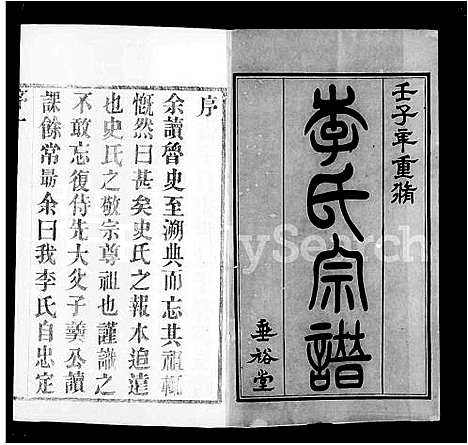 壬子年重脩
李氏宗譜
垂裕堂
序
余讀魯史至溯典而忘其祖輒
慨然曰甚矣史氏之報本追遠
也史氏之敬宗尊祖也謹識之
不敢忘復侍先大父子羹公讀
課餘常勗余曰我李氏自忠定
序一
MySearch